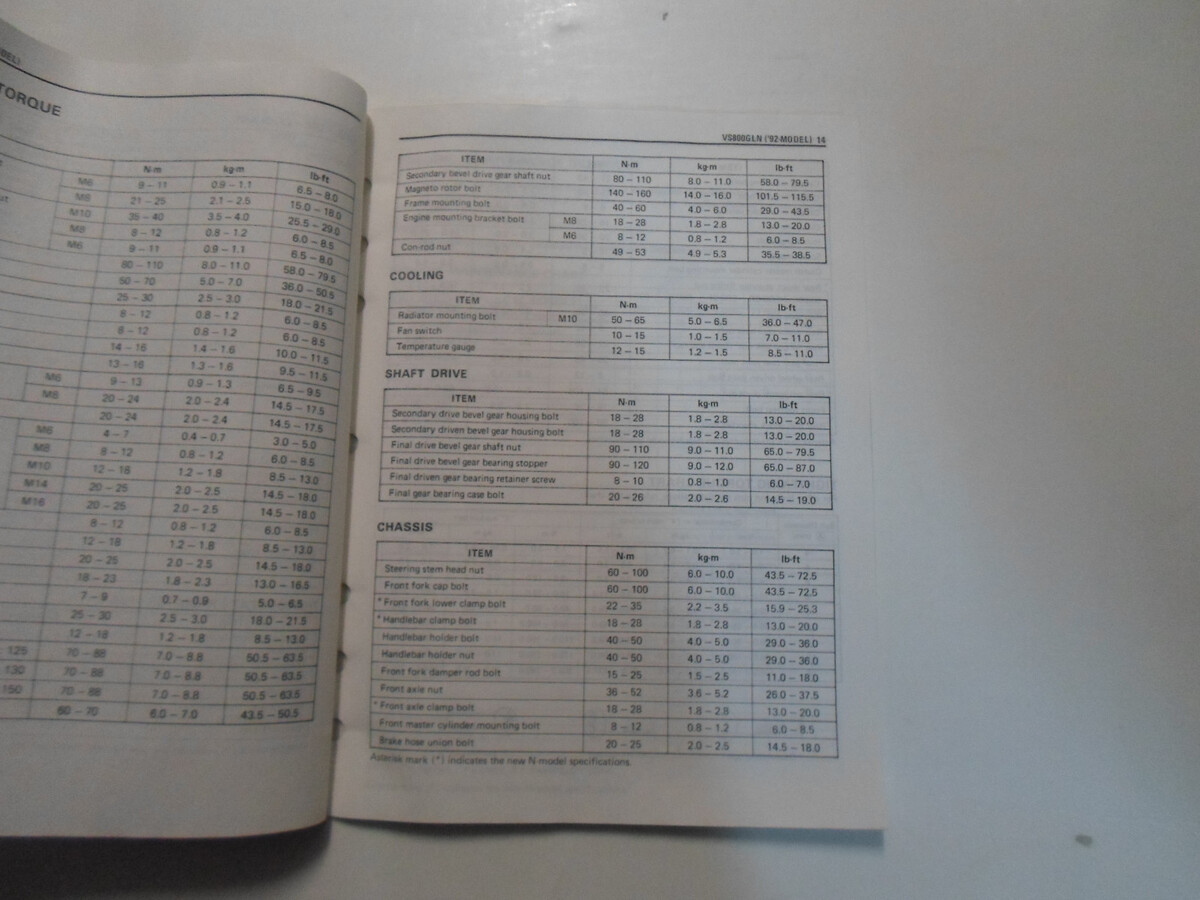 DEL)
TORQUE
N·m kg·m lb·ft
M6 8 – 11 0.9 – 1.1 6.5 – 8.0
M8 21 – 25 2.1 – 2.5 15.0 – 18.0
M10 35 – 40 3.5 – 4.0 25.5 – 29.0
M8 8 – 12 0.8 – 1.2 6.0 – 8.5
M6 9 – 11 0.9 – 1.1 6.5 – 8.0
80 – 110 8.0 – 11.0 58.0 – 79.5
50 – 70 5.0 – 7.0 36.0 – 50.5
25 – 30 2.5 – 3.0 18.0 – 21.5
8 – 12 0.8 – 1.2 6.0 – 8.5
8 – 12 0.8 – 1.2 6.0 – 8.5
14 – 16 1.4 – 1.6 10.0 – 11.5
13 – 16 1.3 – 1.6 9.5 – 11.5
M6 9 – 13 0.9 – 1.3 6.5 – 9.5
M8 20 – 24 2.0 – 2.4 14.5 – 17.5
20 – 24 2.0 – 2.4 14.5 – 17.5
M6 4 – 7 0.4 – 0.7 3.0 – 5.0
M8 8 – 12 0.8 – 1.2 6.0 – 8.5
M10 12 – 18 1.2 – 1.8 8.5 – 13.0
M14 20 – 25 2.0 – 2.5 14.5 – 18.0
M16 20 – 25 2.0 – 2.5 14.5 – 18.0
8 – 12 0.8 – 1.2 6.0 – 8.5
12 – 18 1.2 – 1.8 8.5 – 13.0
20 – 25 2.0 – 2.5 14.5 – 18.0
18 – 23 1.8 – 2.3 13.0 – 16.5
7 – 9 0.7 – 0.9 5.0 – 6.5
25 – 30 2.5 – 3.0 18.0 – 21.5
12 – 18 1.2 – 1.8 8.5 – 13.0
125 70 – 88 7.0 – 8.8 50.5 – 63.5
130 70 – 88 7.0 – 8.8 50.5 – 63.5
150 70 – 88 7.0 – 8.8 50.5 – 63.5
60 – 70 6.0 – 7.0 43.5 – 50.5
VS800GLN ('92-MODEL) 14
ITEM N·m kg·m lb·ft
Secondary bevel drive gear shaft nut 80 – 110 8.0 – 11.0 58.0 – 79.5
Magneto rotor bolt 140 – 160 14.0 – 16.0 101.5 – 115.5
Frame mounting bolt 40 – 60 4.0 – 6.0 29.0 – 43.5
Engine mounting bracket bolt M8 18 – 28 1.8 – 2.8 13.0 – 20.0
M6 8 – 12 0.8 – 1.2 6.0 – 8.5
Con-rod nut 49 – 53 4.9 – 5.3 35.5 – 38.5
COOLING
ITEM N·m kg·m lb·ft
Radiator mounting bolt M10 50 – 65 5.0 – 6.5 36.0 – 47.0
Fan switch 10 – 15 1.0 – 1.5 7.0 – 11.0
Temperature gauge 12 – 15 1.2 – 1.5 8.5 – 11.0
SHAFT DRIVE
ITEM N·m kg·m lb·ft
Secondary drive bevel gear housing bolt 18 – 28 1.8 – 2.8 13.0 – 20.0
Secondary driven bevel gear housing bolt 18 – 28 1.8 – 2.8 13.0 – 20.0
Final drive bevel gear shaft nut 90 – 110 9.0 – 11.0 65.0 – 79.5
Final drive bevel gear bearing stopper 90 – 120 9.0 – 12.0 65.0 – 87.0
Final driven gear bearing retainer screw 8 – 10 0.8 – 1.0 6.0 – 7.0
Final gear bearing case bolt 20 – 26 2.0 – 2.6 14.5 – 19.0
CHASSIS
ITEM N·m kg·m lb·ft
Steering stem head nut 60 – 100 6.0 – 10.0 43.5 – 72.5
Front fork cap bolt 60 – 100 6.0 – 10.0 43.5 – 72.5
*Front fork lower clamp bolt 22 – 35 2.2 – 3.5 15.9 – 25.3
*Handlebar clamp bolt 18 – 28 1.8 – 2.8 13.0 – 20.0
Handlebar holder bolt 40 – 50 4.0 – 5.0 29.0 – 36.0
Handlebar holder nut 40 – 50 4.0 – 5.0 29.0 – 36.0
Front fork damper rod bolt 15 – 25 1.5 – 2.5 11.0 – 18.0
Front axle nut 36 – 52 3.6 – 5.2 26.0 – 37.5
*Front axle clamp bolt 18 – 28 1.8 – 2.8 13.0 – 20.0
Front master cylinder mounting bolt 8 – 12 0.8 – 1.2 6.0 – 8.5
Brake hose union bolt 20 – 25 2.0 – 2.5 14.5 – 18.0
Asterisk mark (*) indicates the new N-model specifications.